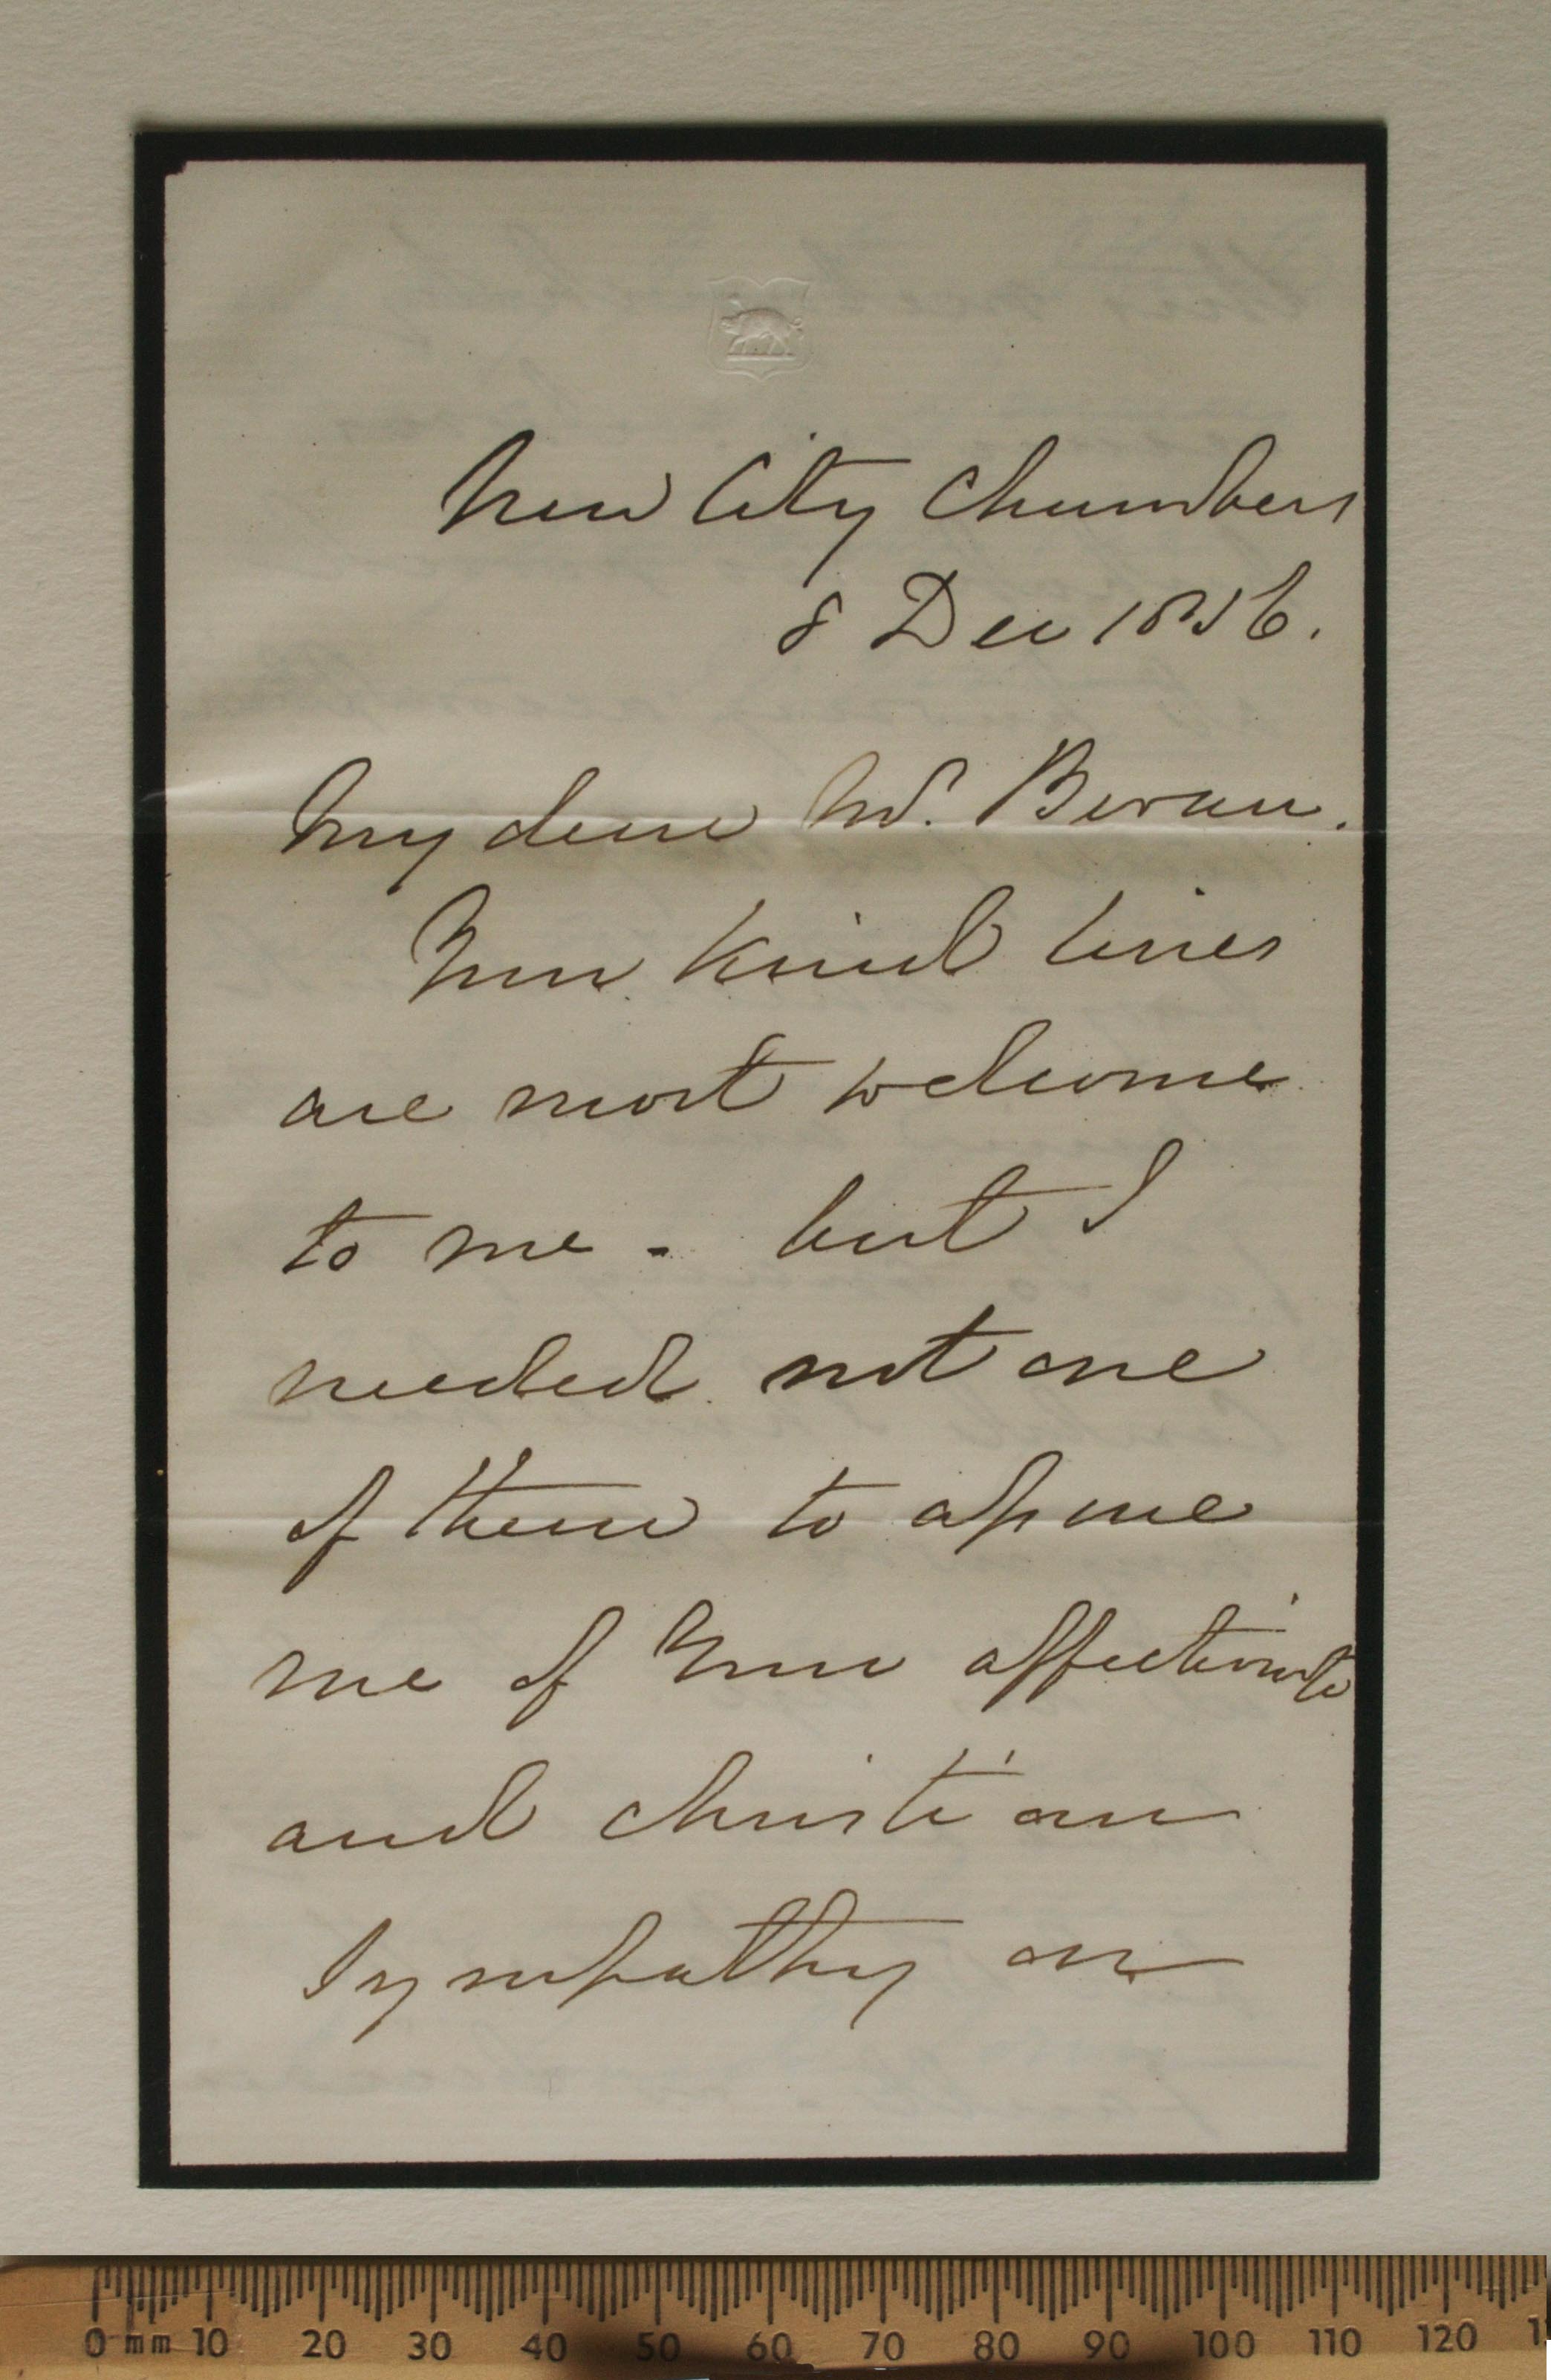 New City Chambers
8 Dec 1856.
My dear Mr. Bevan.
Your kind lines
are most welcome
to me - but I
needed not one
of them to assure
me of your affectionate
and Christian
Sympathy on
0 mm 10 20 30 40 50 60 70 80 90 100 110 120 1